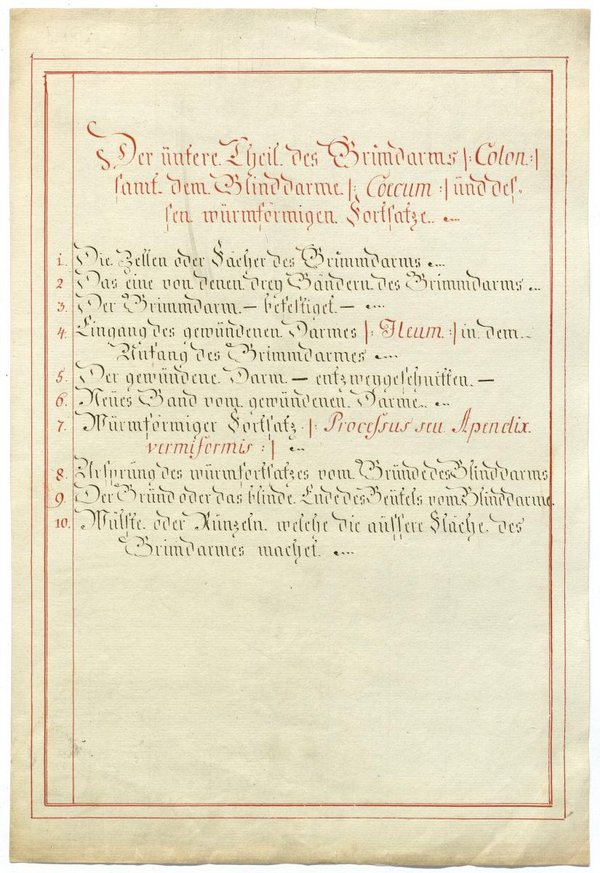 Der üntere Theil des Grimdarms |: Colon :|
samt dem Blinddarme |: Coecum :| ünd des-
sen würmförmigen Fortsatze.
1. Die Zellen oder Fächer des Grimmdarms
2 Das eine von denen drey Bändern des Grimmdarms
3. Der Grimmdarm — befestiget —
4. Eingang des gewündenen Darmes |: Ileum :| in dem
Anfang des Grimmdarmes
5. Der gewündene Darm — entzweygeschnitten —
6. Neües Band vom gewündenen Darme
7. Würmförmiger Fortsatz |: Processus seu Apendix
vermiformis :|
8. Ursprüng des würmfortsatzes vom Gründe des Blinddarms
9. Der Gründ oder das blinde Ende des Beütels vom Blinddarme
10. Wülste oder Rünzeln, welche die aüssere Fläche des
Grimdarmes machet.